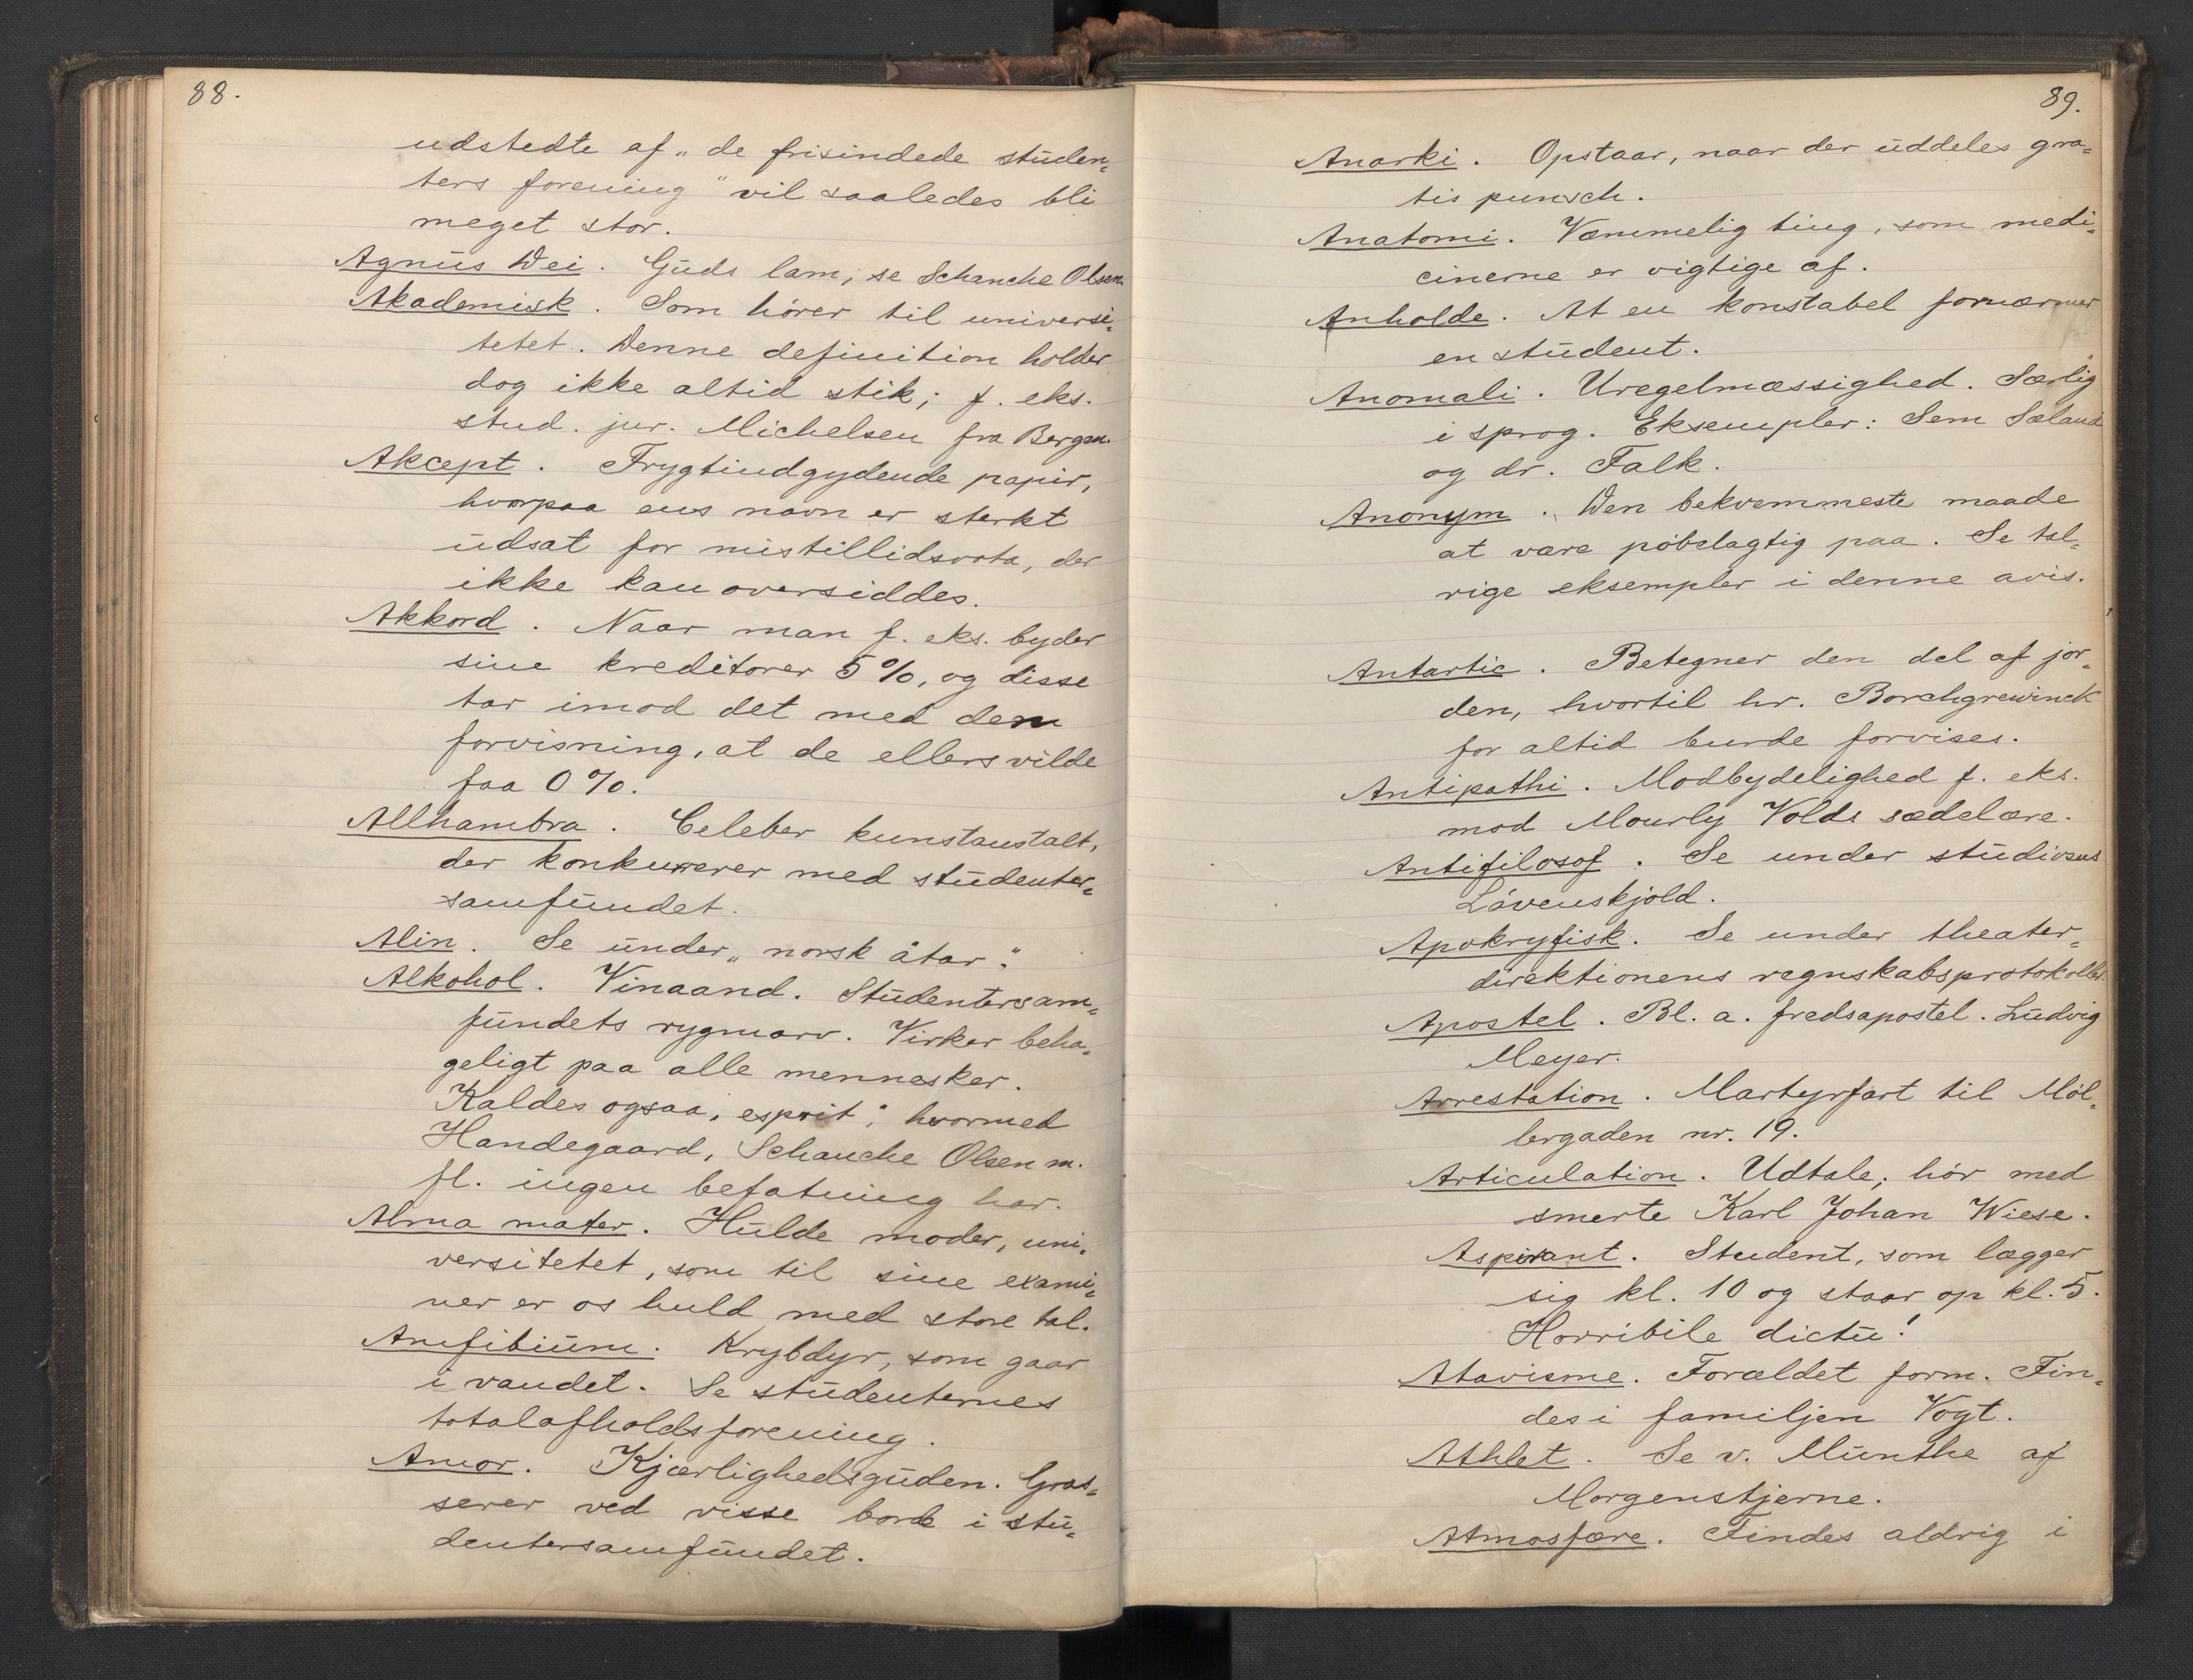 88.
udstedte af „de frisindede studen=
ters forening" vil saaledes bli
meget stor.
Agnus Dei. Guds lam; se Schanche Olsen.
Akademisk. Som hører til universi=
tetet. Denne definition holder
dog ikke altid stik; f. eks.
stud. jur. Michelsen fra Bergen.
Akcept. Frygtindgydende papir,
hvorpaa ens navn er sterkt
udsat for mistillidsvota, der
ikke kan oversiddes.
Akkord. Naar man f. eks. byder
sine kreditorer 5%, og disse
tar imod det med den
forvisning, at de ellers vilde
faa 0%.
Allhambra. Celeber kunstanstalt,
der konkurrerer med studenter=
samfundet.
Alin. Se under „norsk åtar".
Alkohol. Vinaand. Studentersam=
fundets rygmarv. Virker beha=
geligt paa alle mennesker.
Kaldes ogsaa „esprit", hvormed
Handegaard, Schanche Olsen m.
fl. ingen befatning har.
Alma mater. Hulde moder, uni=
versitetet, som til sine exami=
ner er os huld med store tal.
Amfibium. Krybdyr, som gaar
i vandet. Se studenternes
totalafholdsforening.
Amor. Kjærlighedsguden. Gras=
serer ved visse borde i stu=
dentersamfundet.
89.
Anarki. Opstaar, naar der uddeles gra=
tis punsch.
Anatomi. Væmmelig ting, som medi=
cinerne er vigtige af.
Anholde. At en konstabel fornærmer
en student.
Anomali. Uregelmæssighed. Særlig
i sprog. Eksempler: Sem Sæland
og dr. Falk.
Anonym. Den bekvemmeste maade
at være pøbelagtig paa. Se tal=
rige eksempler i denne avis.
Antartic. Betegner den del af jor=
den, hvortil hr. Borchgrewinck
for altid burde forvises.
Antipathi. Modbydelighed f. eks.
mod Mourly Volds sædelære.
Antifilosof. Se under studiosus
Løvenskjold.
Apokryfisk. Se under theater=
direktionens regnskabsprotokoller.
Apostel. Bl. a. fredsapostel. Ludvig
Meyer.
Arrestation. Martyrfart til Møl=
lergaden nr. 19.
Articulation. Udtale; hør med
smerte Karl Johan Wiese.
Aspirant. Student, som lægger
sig kl. 10 og staar op kl. 5.
Horribile dictu!
Atavisme. Forældet form. Fin=
des i familjen Vogt.
Athlet. Se v. Munthe af
Morgenstjerne.
Atmosfære. Findes aldrig i